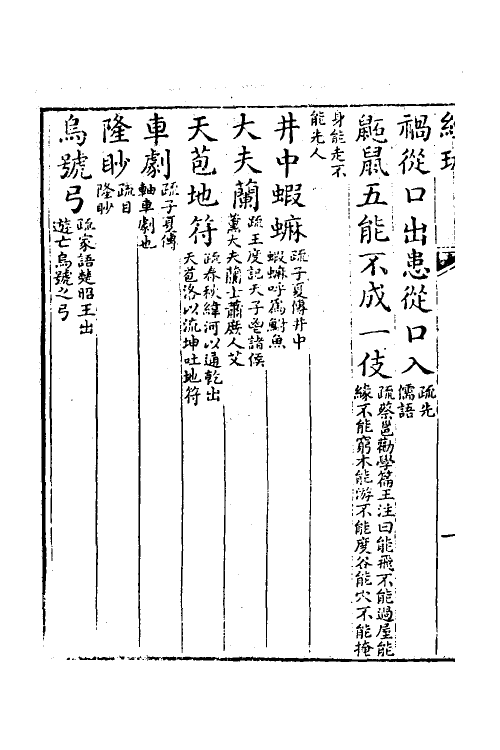 禍從口出患從口入 疏先
儒語
鼫鼠五能不成一伎 疏蔡邕勸學篇王注曰能飛不能過屋能
緣不能窮木能游不能度谷能穴不能掩
身能走不
能先人
井中蝦蟆 疏子夏傳井中
蝦蟆呼爲鮒魚
大夫蘭 疏王度記天子鬯諸侯
薰大夫蘭士蕭庶人艾
天苞地符 疏春秋緯河以通乾出
天苞洛以流坤吐地符
車劇 疏子夏傳
軸車劇也
隆眇 疏目
隆眇
烏號弓 疏家語楚昭王出
遊亡烏號之弓
一